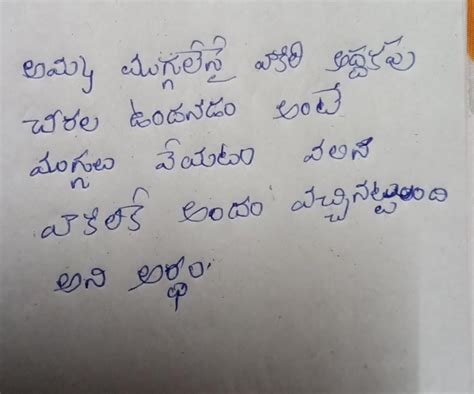 అమ్మ ముగ్గులేనై వాకిలి అద్దకపు
చీరల ఉందనడం అంటే
ముగ్గులు వేయటం వలన
వాకిలికి అందం వచ్చినట్టుంది
అని అర్థం.